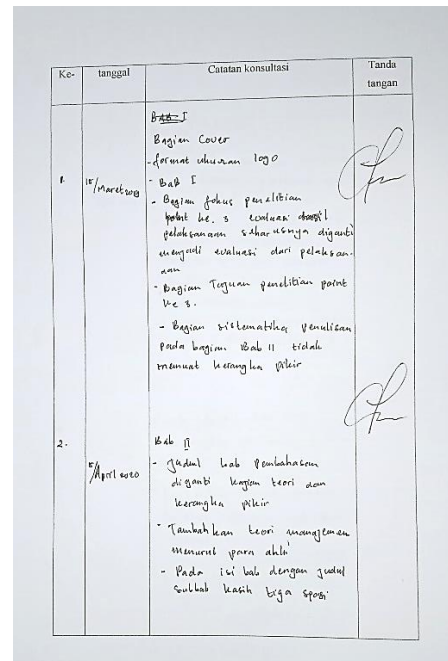 Ke- tanggal Catatan konsultasi Tanda tangan
Bab I
Bagian Cover
- format ukuran logo
1. 15/Maret
- BAB I
- Bagian fokus penelitian
point ke. 3 evaluasi
pelaksanaan seharusnya diganti
menjadi evaluasi dari pelaksan-
aan
- Bagian Tujuan penelitian point
ke 3.
- Bagian sistematika penulisan
pada bagian Bab II tidak
memuat kerangka pikir
2. Bab II
/April 2020
- Judul bab Pembahasan
diganti kajian teori dan
kerangka pikir
- Tambahkan teori manajemen
menurut para ahli
- Pada isi bab dengan judul
subbab kasih tiga spasi